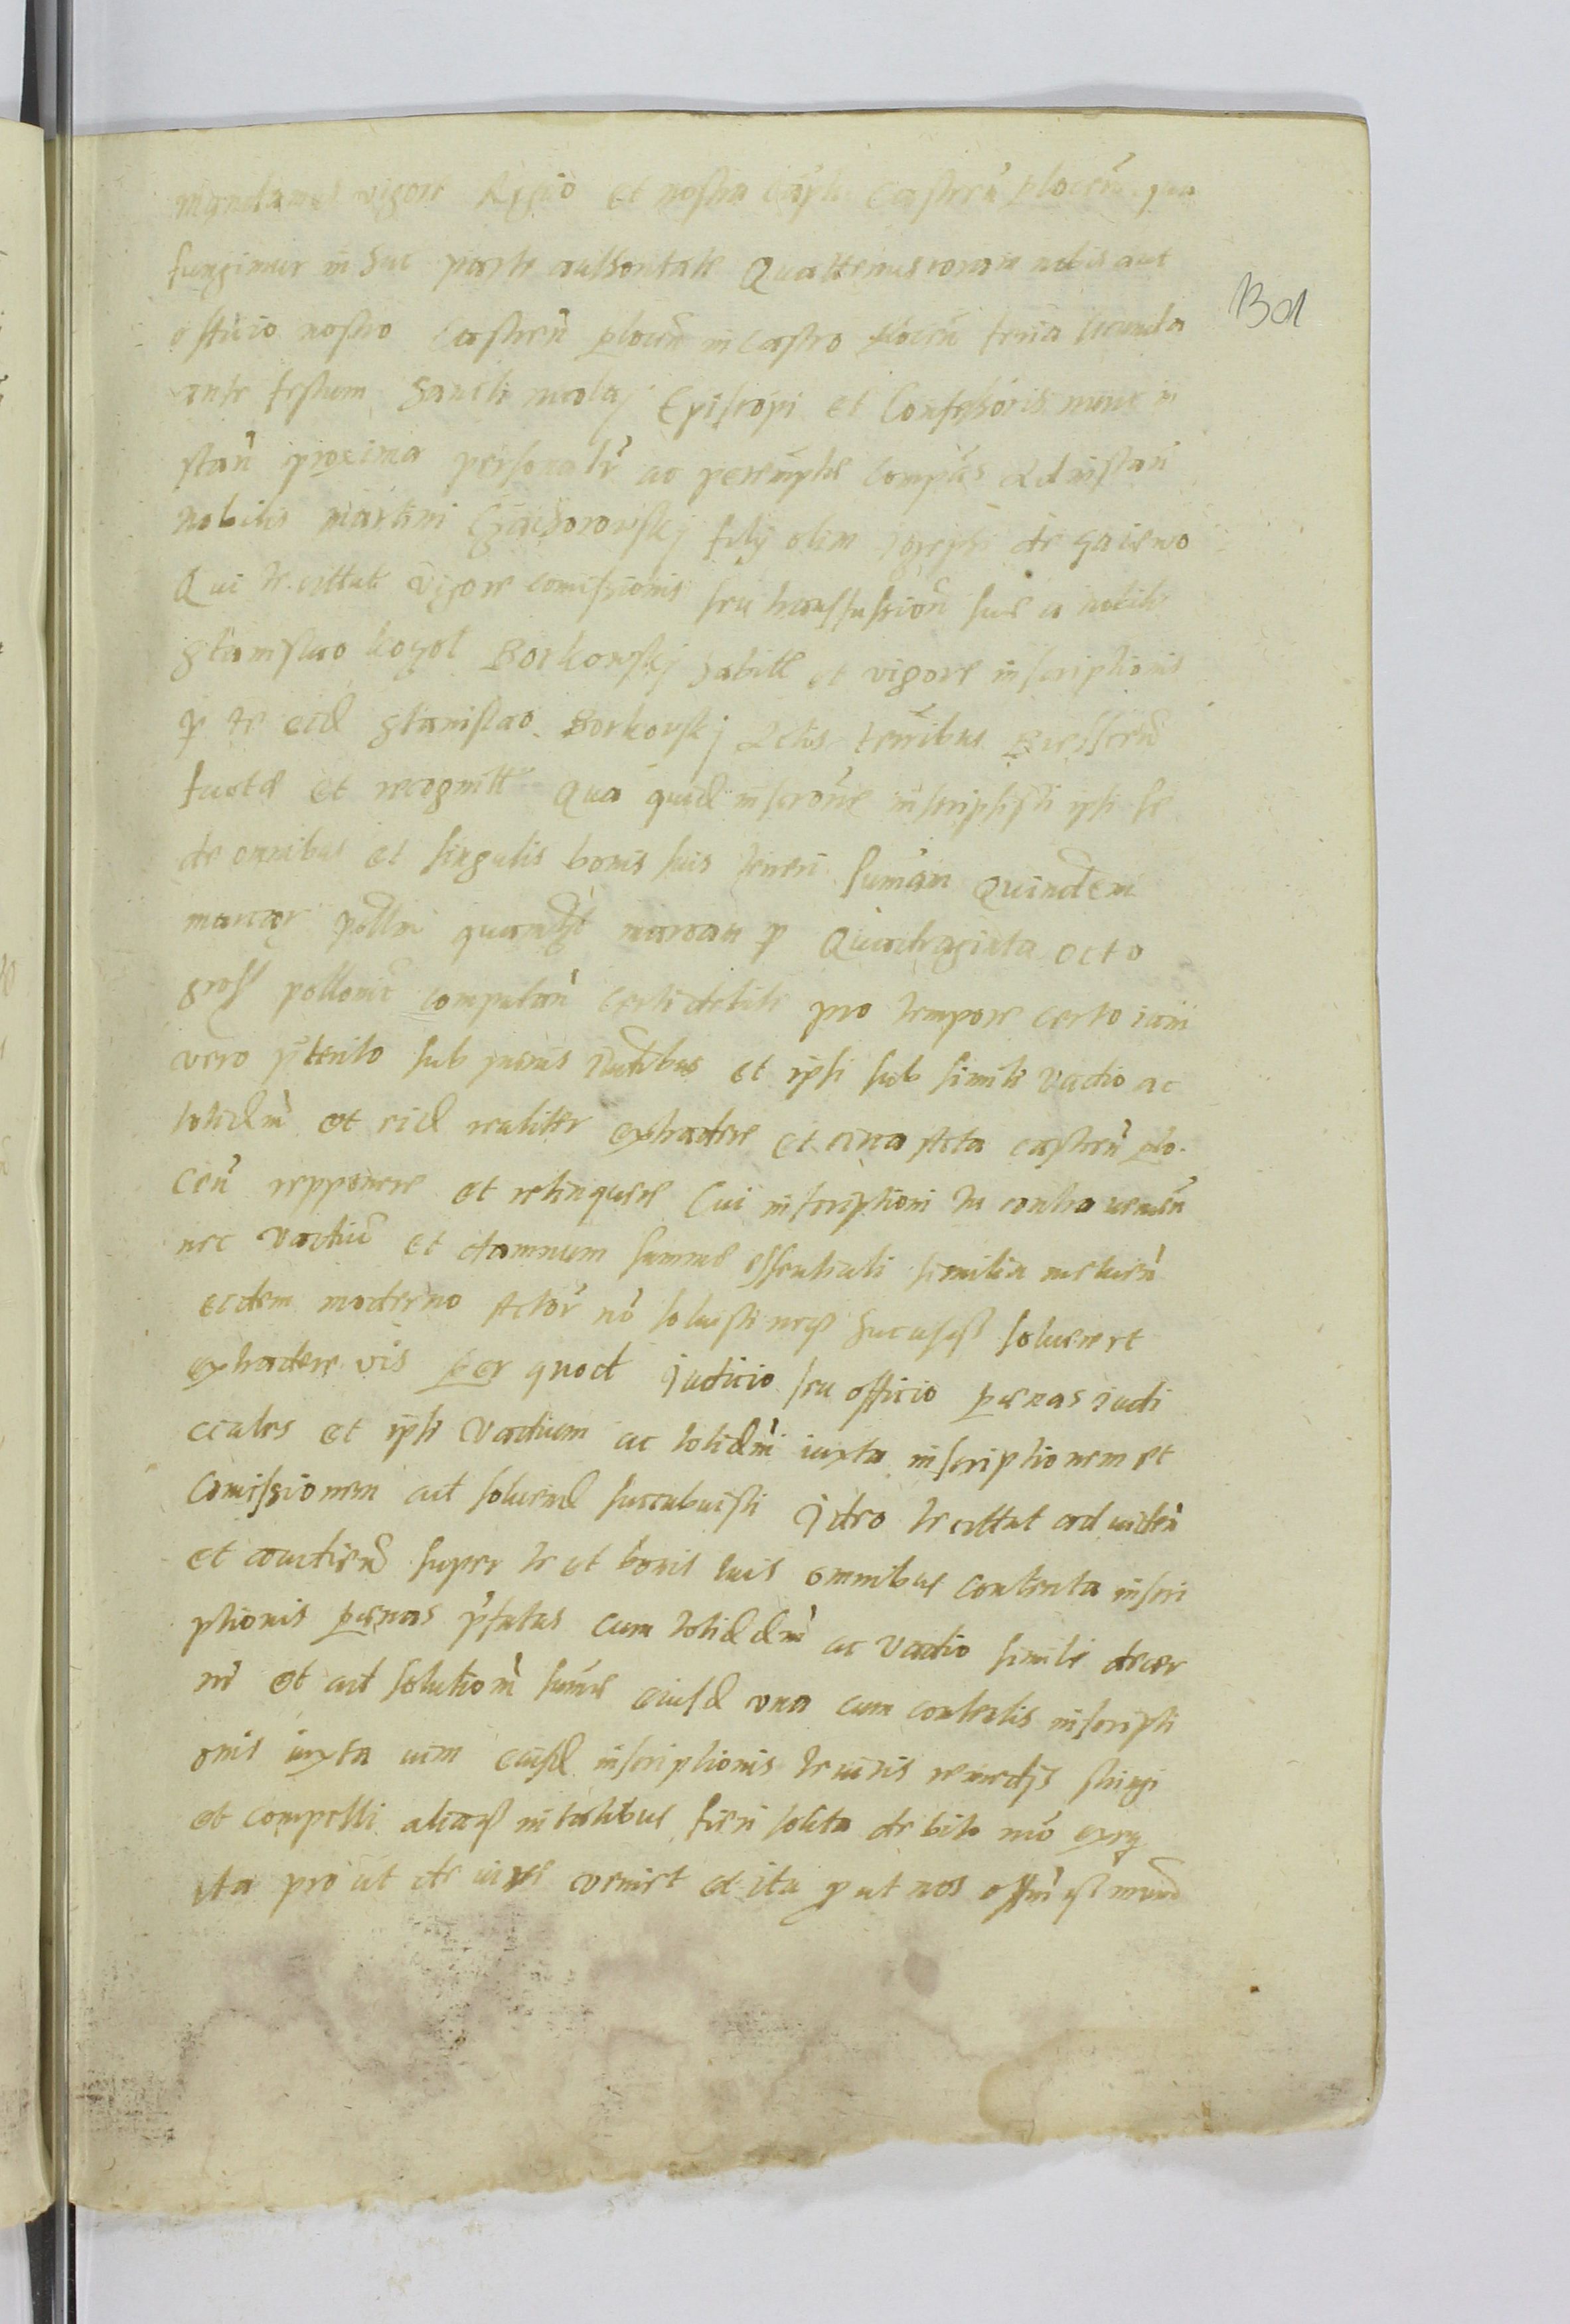 mandamus vigore Regio et nostra Capli Castren plocen qua
fungimur in hac parte authoritate Quattenus coram nobis aut
officio nostro Castren plocen in castro plocen feria secunda
ante festum Sancti nicolaj Episcopi et Confessoris nunc in
stan proxima personalr ac peremptie compas Ad instan
nobilis martini filij olim de
Qui te cittat vigore comissionis seu transfussion sue a nobili
Stanislao kozol Borkowskj habitte et vigore inscriptionis
p te eid Stanislao Borkowskj Actis terribus
factae et recognitte Qua quid inscrone inscripsisti ipsi se
de omnibus et singulis bonis suis teneri sumam Quindem
marcar pollo quamlibet marcam p Quadraginta octo
gross pollonic computan certi debiti pro tempore certo iam
vero pterito sub penis et ipsi sub simili vadio ac
totidm et eid realiter extradere et circa Acta castren plo
cen repponere et relinquere Cui inscriptioni tu contra venien
nec vadiu et damnum summe essentiali similia metuen
eidem moderno Actor no solvisti neq hucusq solvere et
extradere vis Per quod Judicio seu officio penas iudi
ciales et ipsi vadium ac totidm iuxta inscriptionem et
Comissionem ad solvend succubuisti Ideo te cittat ad viden
et audiend super te et bonis tuis omnibus contenta inscri
ptionis penas pfatas cum totiddm ac vadio simili decer
ni et ad solutiom sume eiusd una cum contentis inscripti
onis iuxta vim eiusd inscriptionis te iuris remedijs stringi
et compelli aliaq in talibus fieri solita debito mo exeq
ita pro ut de iure veniet et ita p ut nos
301